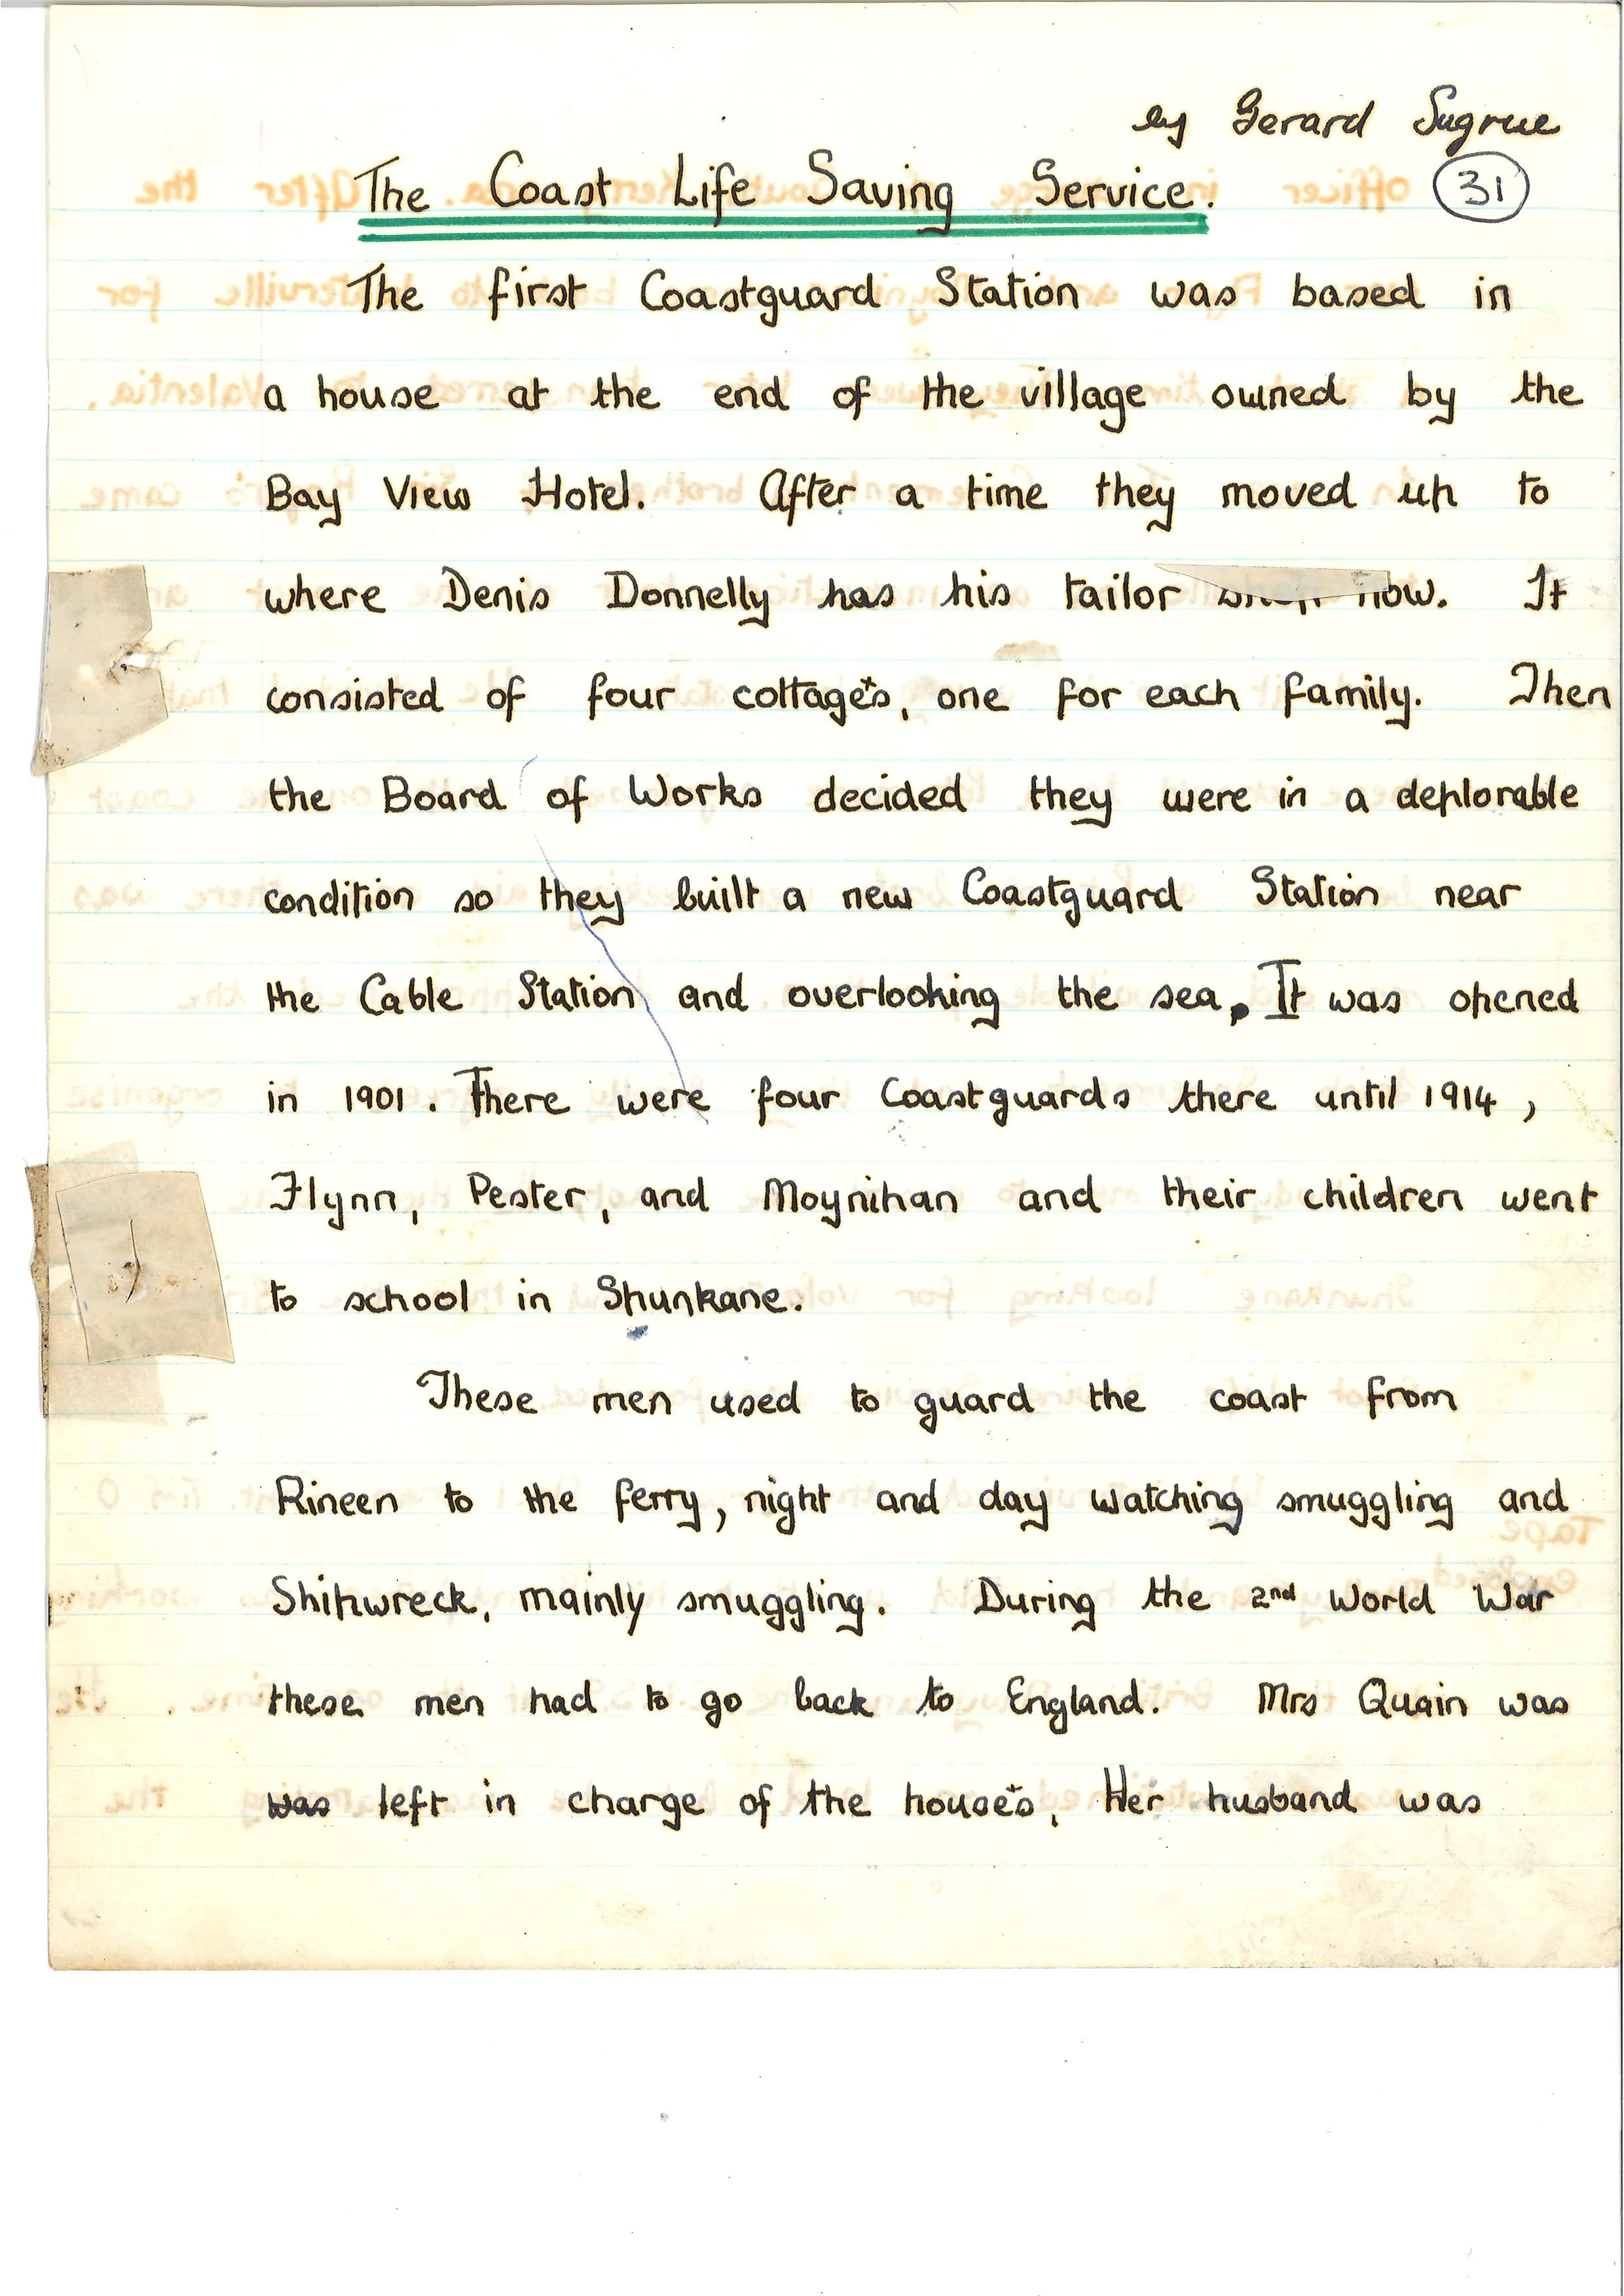 by Gerard Sugrue
The Coast Life Saving Service. 31
The first Coastguard Station was based in
a house at the end of the village owned by the
Bay View Hotel. After a time they moved up to
where Denis Donnelly has his tailor shop now. It
consisted of four cottages, one for each family. Then
the Board of Works decided they were in a deplorable
condition so they built a new Coastguard Station near
the Cable Station and overlooking the sea. It was opened
in 1901. There were four Coastguards there until 1914,
Flynn, Pester, and Moynihan and their children went
to school in Spunkane.
These men used to guard the coast from
Rineen to the ferry, night and day watching smuggling and
Shipwreck, mainly smuggling. During the 2nd World War
these men had to go back to England. Mrs Quain was
was left in charge of the houses, Her husband was